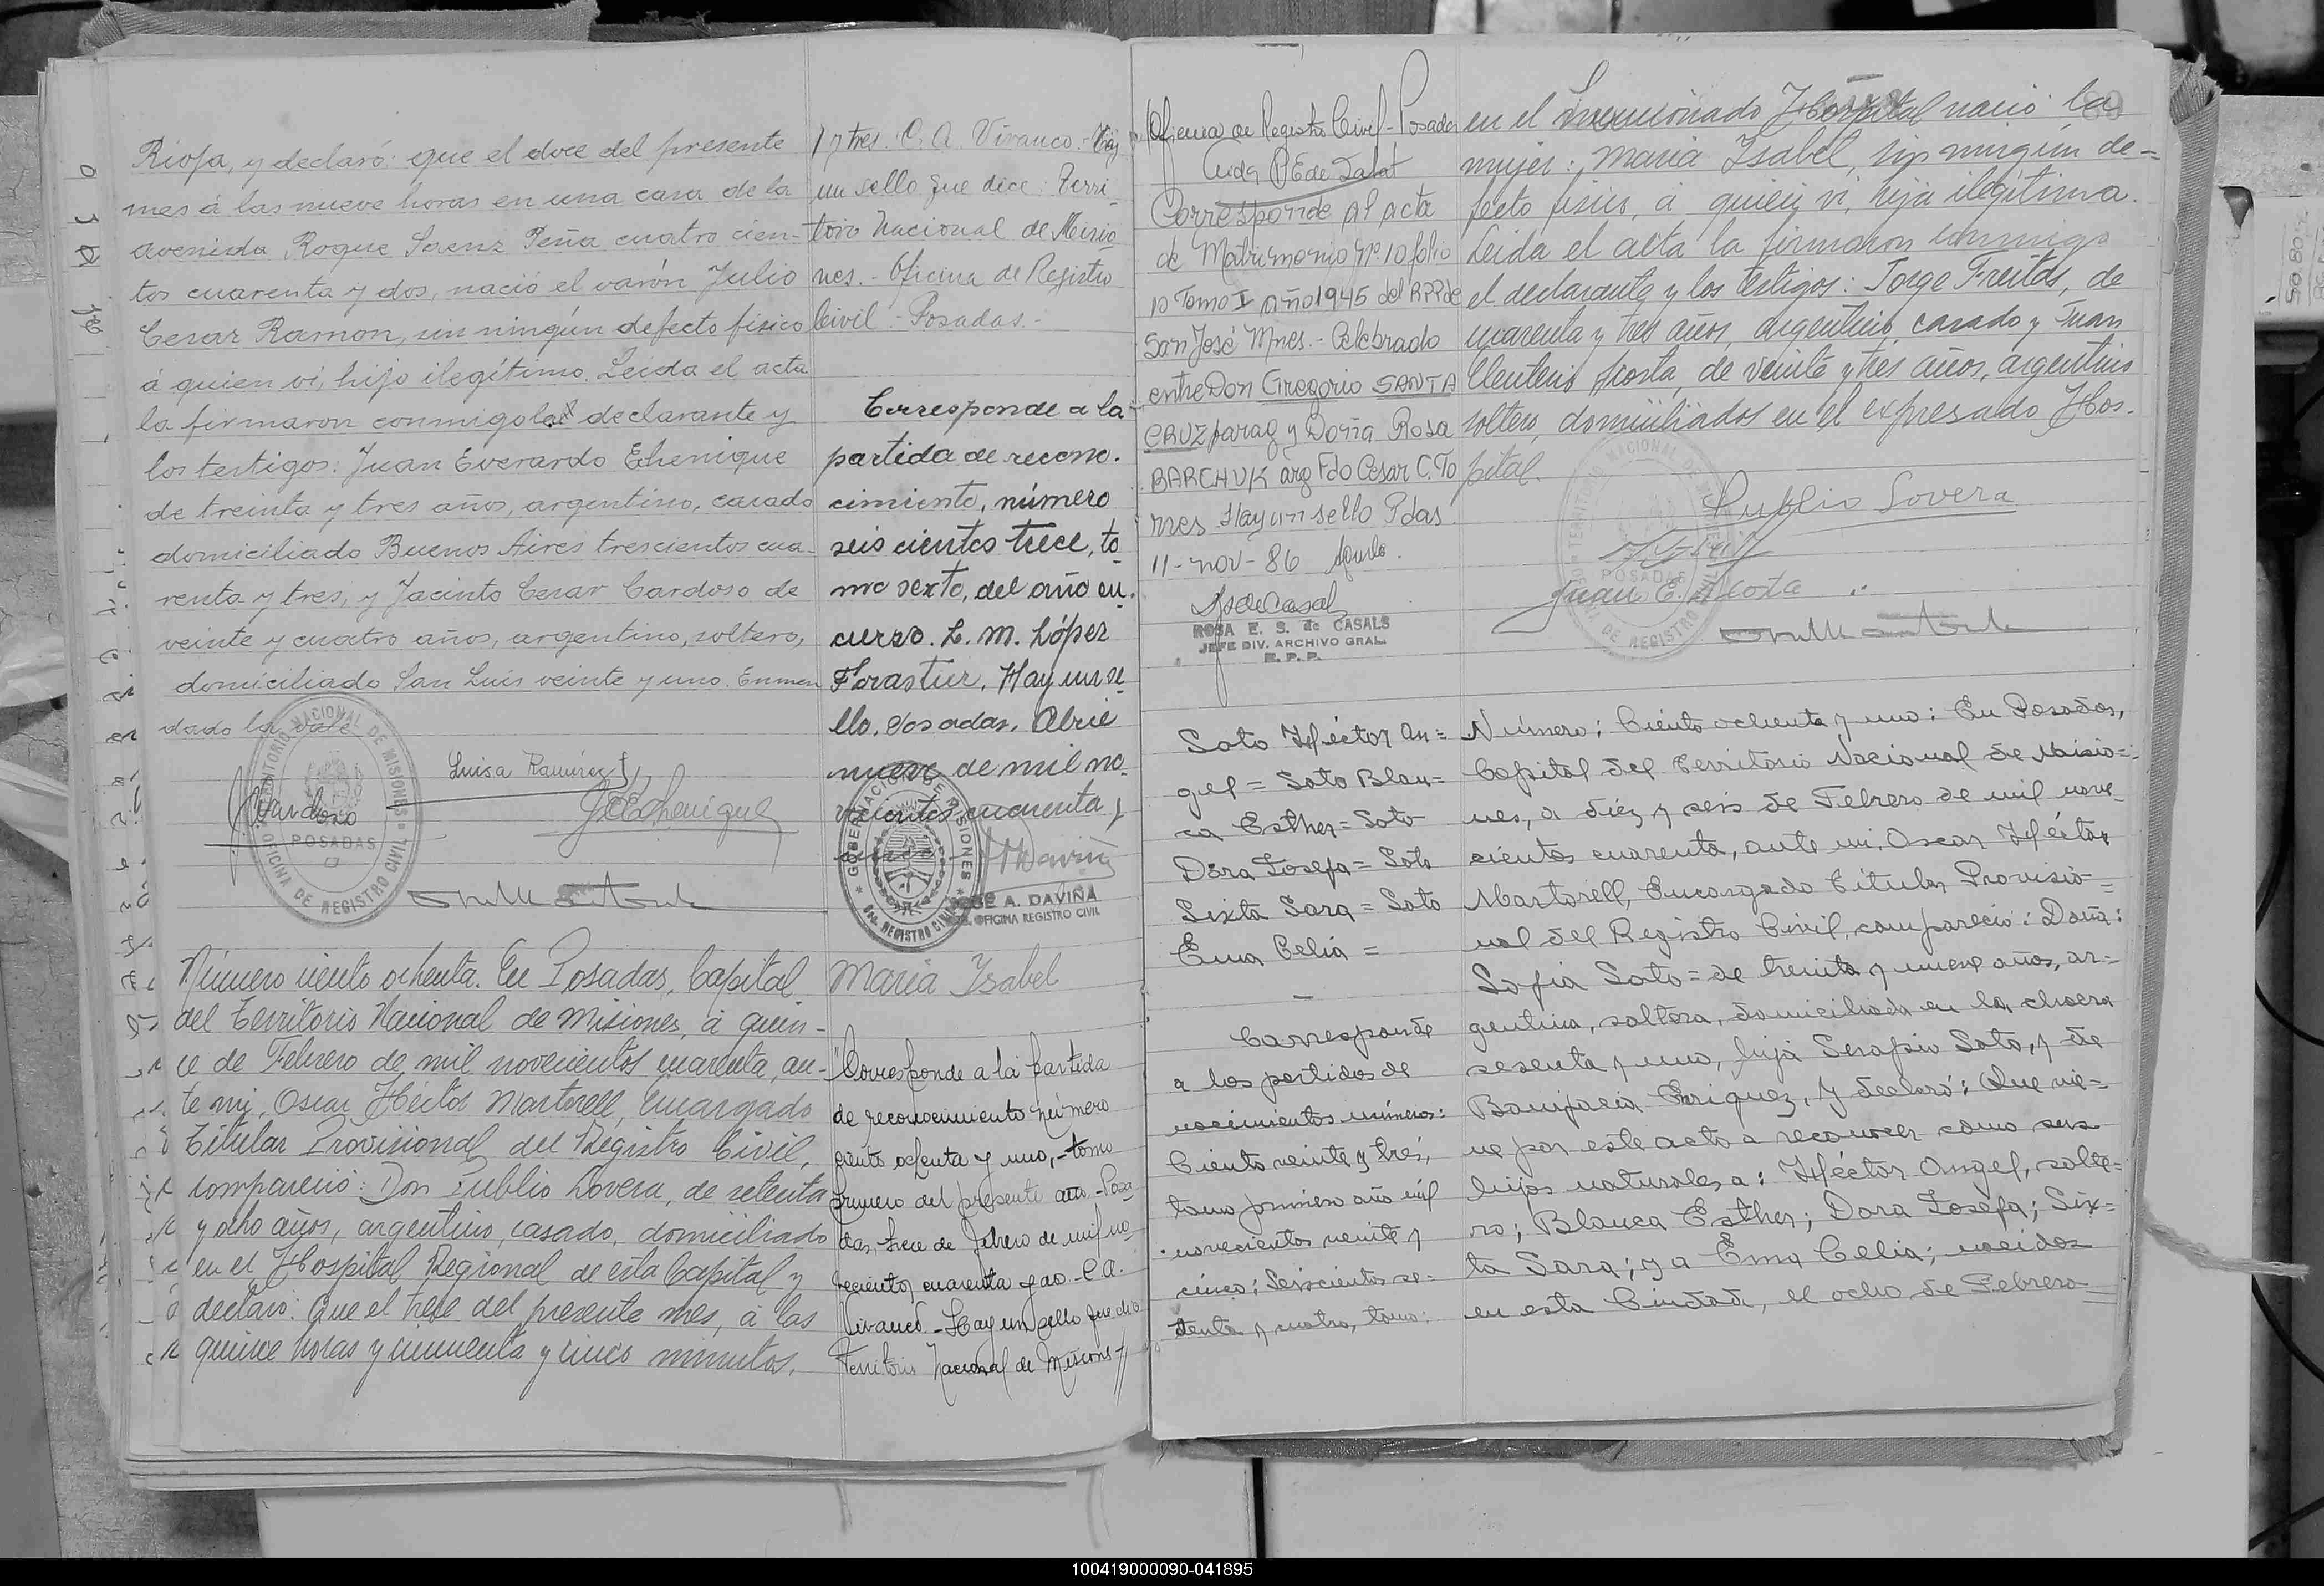 Rioja, y declaró: que el doce del presente
mes á las nueve horas en una casa de la
avenida Roque Saenz Peña cuatro cien-
tos cuarenta y dos, nació el varón Julio
Cesar Ramon, sin ningún defecto físico
á quien ví, hijo ilegítimo. Leída el acta
la firmaron conmigo la declarante y
los testigos: Juan Everardo Echenique
de treinta y tres años, argentino, casado
domiciliado Buenos Aires trescientos cua-
renta y tres, y Jacinto Cesar Cardoso de
veinte y cuatro años, argentino, soltero,
domiciliado San Luis veinte y uno. Enmen
dado la vale
Luisa Ramirez
JCardoso
JEEchenique
TERRITORIO NACIONAL DE MISIONES
OFICINA DE REGISTRO CIVIL
POSADAS
Número ciento ochenta. En Posadas, Capital
del Territorio Nacional de Misiones, á quin-
ce de Febrero de mil novecientos cuarenta, an-
te mi, Oscar Héctor Martorell, Encargado
Titular Provisional del Registro Civil,
compareció: Don Publio Lovera, de setenta
y ocho años, argentino, casado, domiciliado
en el Hospital Regional de esta Capital y
declaró: Que el trece del presente mes, á las
quince horas y cincuenta y cinco minutos,
y tres. C. A. Vivanco.- Hay
un sello que dice: Terri-
torio Nacional de Misio
nes.- Oficina de Registro
Civil.- Posadas.-
Corresponde a la
partida de recono-
cimiento, número
seiscientos trece, to
mo sexto, del año en
curso. L. M. López
Forastier. Hay un se
llo. Posadas, Abril
nueve de mil no-
vecientos cuarenta y
GOBERNACION DE MISIONES
REGISTRO CIVIL
JOSE A. DAVIÑA
OFICINA REGISTRO CIVIL
Maria Ysabel
"Corresponde a la partida
de reconocimiento número
ciento ochenta y uno, tomo
primero del presente año - Posa
das, trece de Febrero de mil no
vecientos cuarenta y
Vivanco.- Hay un sello que dice
Territorio Nacional de Misiones-//
Oficina de Registro Civil - Posadas
Corresponde al acta
de Matrimonio Nº 10 folio
10 Tomo I año 1945 del RPP de
San José Mnes.- Celebrado
entre Don Gregorio SANTA
CRUZ parag y Doña Rosa
BARCHUK arg Fdo Cesar C. To
rres Hay un sello Pdas
11-nov-86
ROSA E. S. de CASALS
JEFE DIV. ARCHIVO GRAL.
R. P. P.
Soto Héctor An=
gel = Soto Blan=
ca Esther = Soto
Dora Josefa = Soto
Sixta Sara = Soto
Ema Celia =
Corresponde
a las partidas de
nacimientos números:
Ciento veinte y tres,
tomo primero año mil
novecientos veinte y
cinco; Seiscientos se-
tenta y cuatro, tomo:
en el mencionado Hospital nació la
mujer: Maria Ysabel, sin ningún de-
fecto físico, á quien ví, hija ilegítima.
Leida el acta la firmaron conmigo
el declarante y los testigos: Jorge Freitas, de
cuarenta y tres años, argentino, casado y Juan
Eleuterio Acosta, de veinte y tres años, argentino
soltero, domiciliados en el expresado Hos-
pital.
Publio Lovera
Juan E. Acosta
TERRITORIO NACIONAL DE MISIONES
OFICINA DE REGISTRO CIVIL
POSADAS
Número; Ciento ochenta y uno: En Posadas,
Capital del Territorio Nacional de Misio=
nes, a diez y seis de Febrero de mil nove-
cientos cuarenta, ante mi, Oscar Héctor
Martorell, Encargado Titular Provisio=
nal del Registro Civil, compareció: Doña:
Sofia Soto = de treinta y nueve años, ar=
gentina, soltera, domiciliada en la chacra
sesenta y uno, hija Serapio Soto, y de
Bonifacia Enriquez, y declaró: Que vie=
ne por este acto a reconocer como sus
hijos naturales a: Héctor Angel, solte=
ro; Blanca Esther; Dora Josefa; Six=
ta Sara; y a Ema Celia; nacidos
en esta Ciudad, el ocho de Febrero=
100419000090-041895